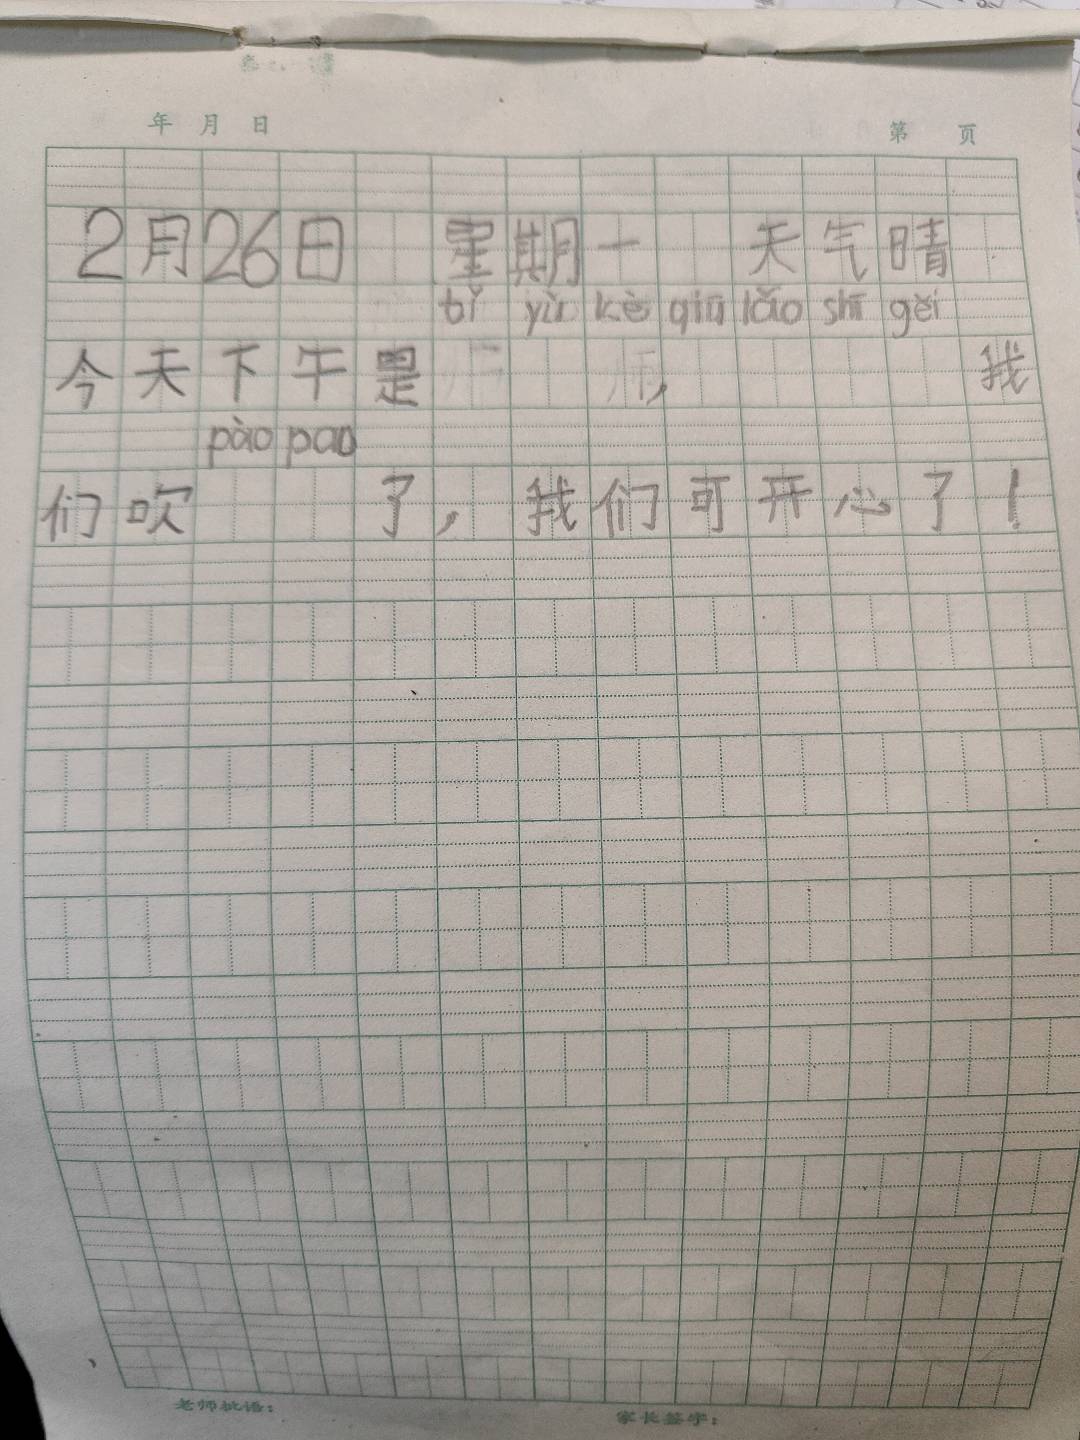 年 月 日 第 页
2月26日 星期一 天气晴
tǐ yù kè qiū lǎo shī gěi
今天下午是 师, 我
pào pao
们吹 了,我们可开心了!
老师批语:
家长签字: